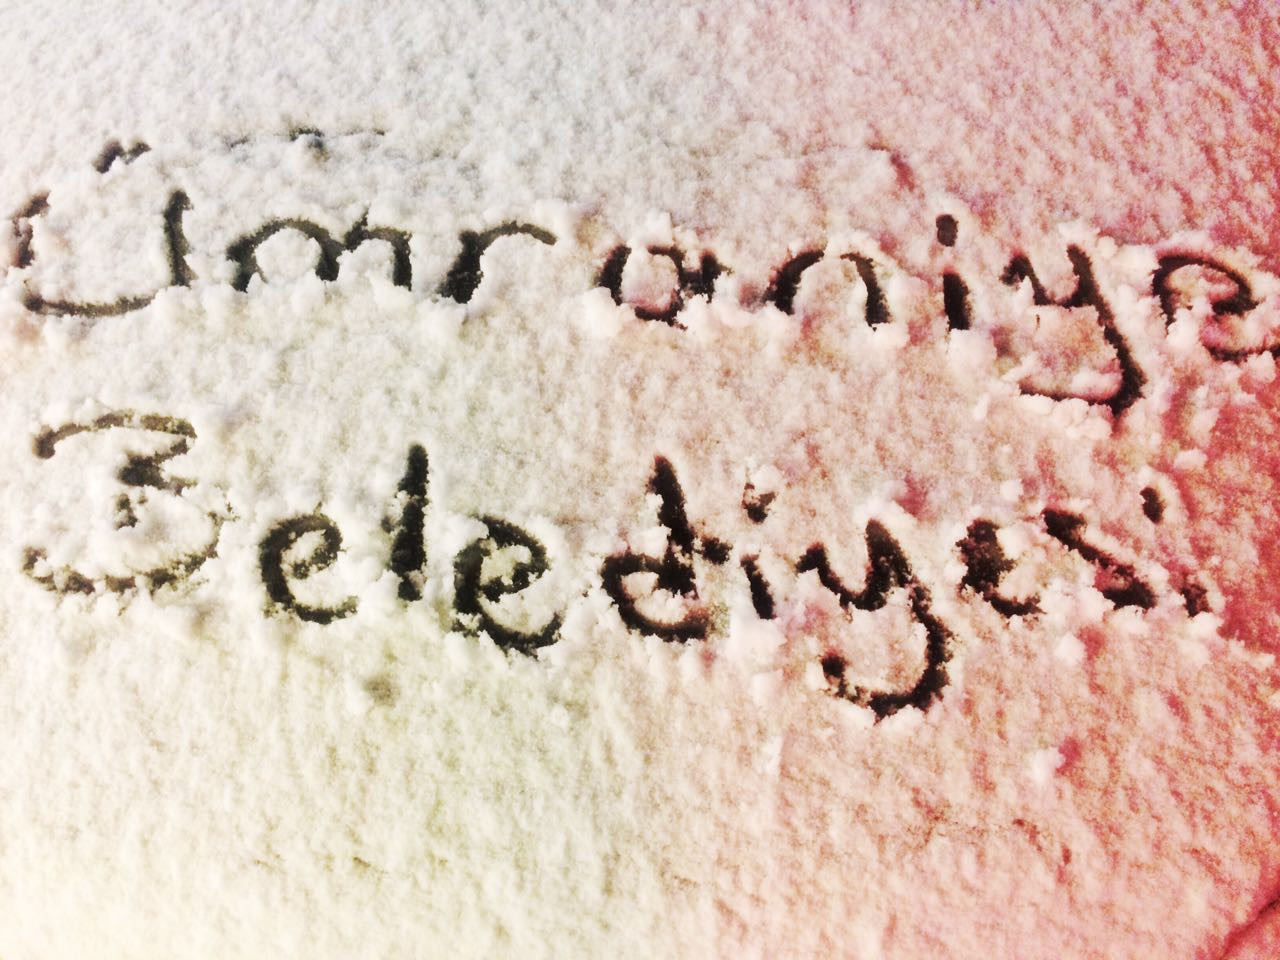 Ümraniye
Belediyesi